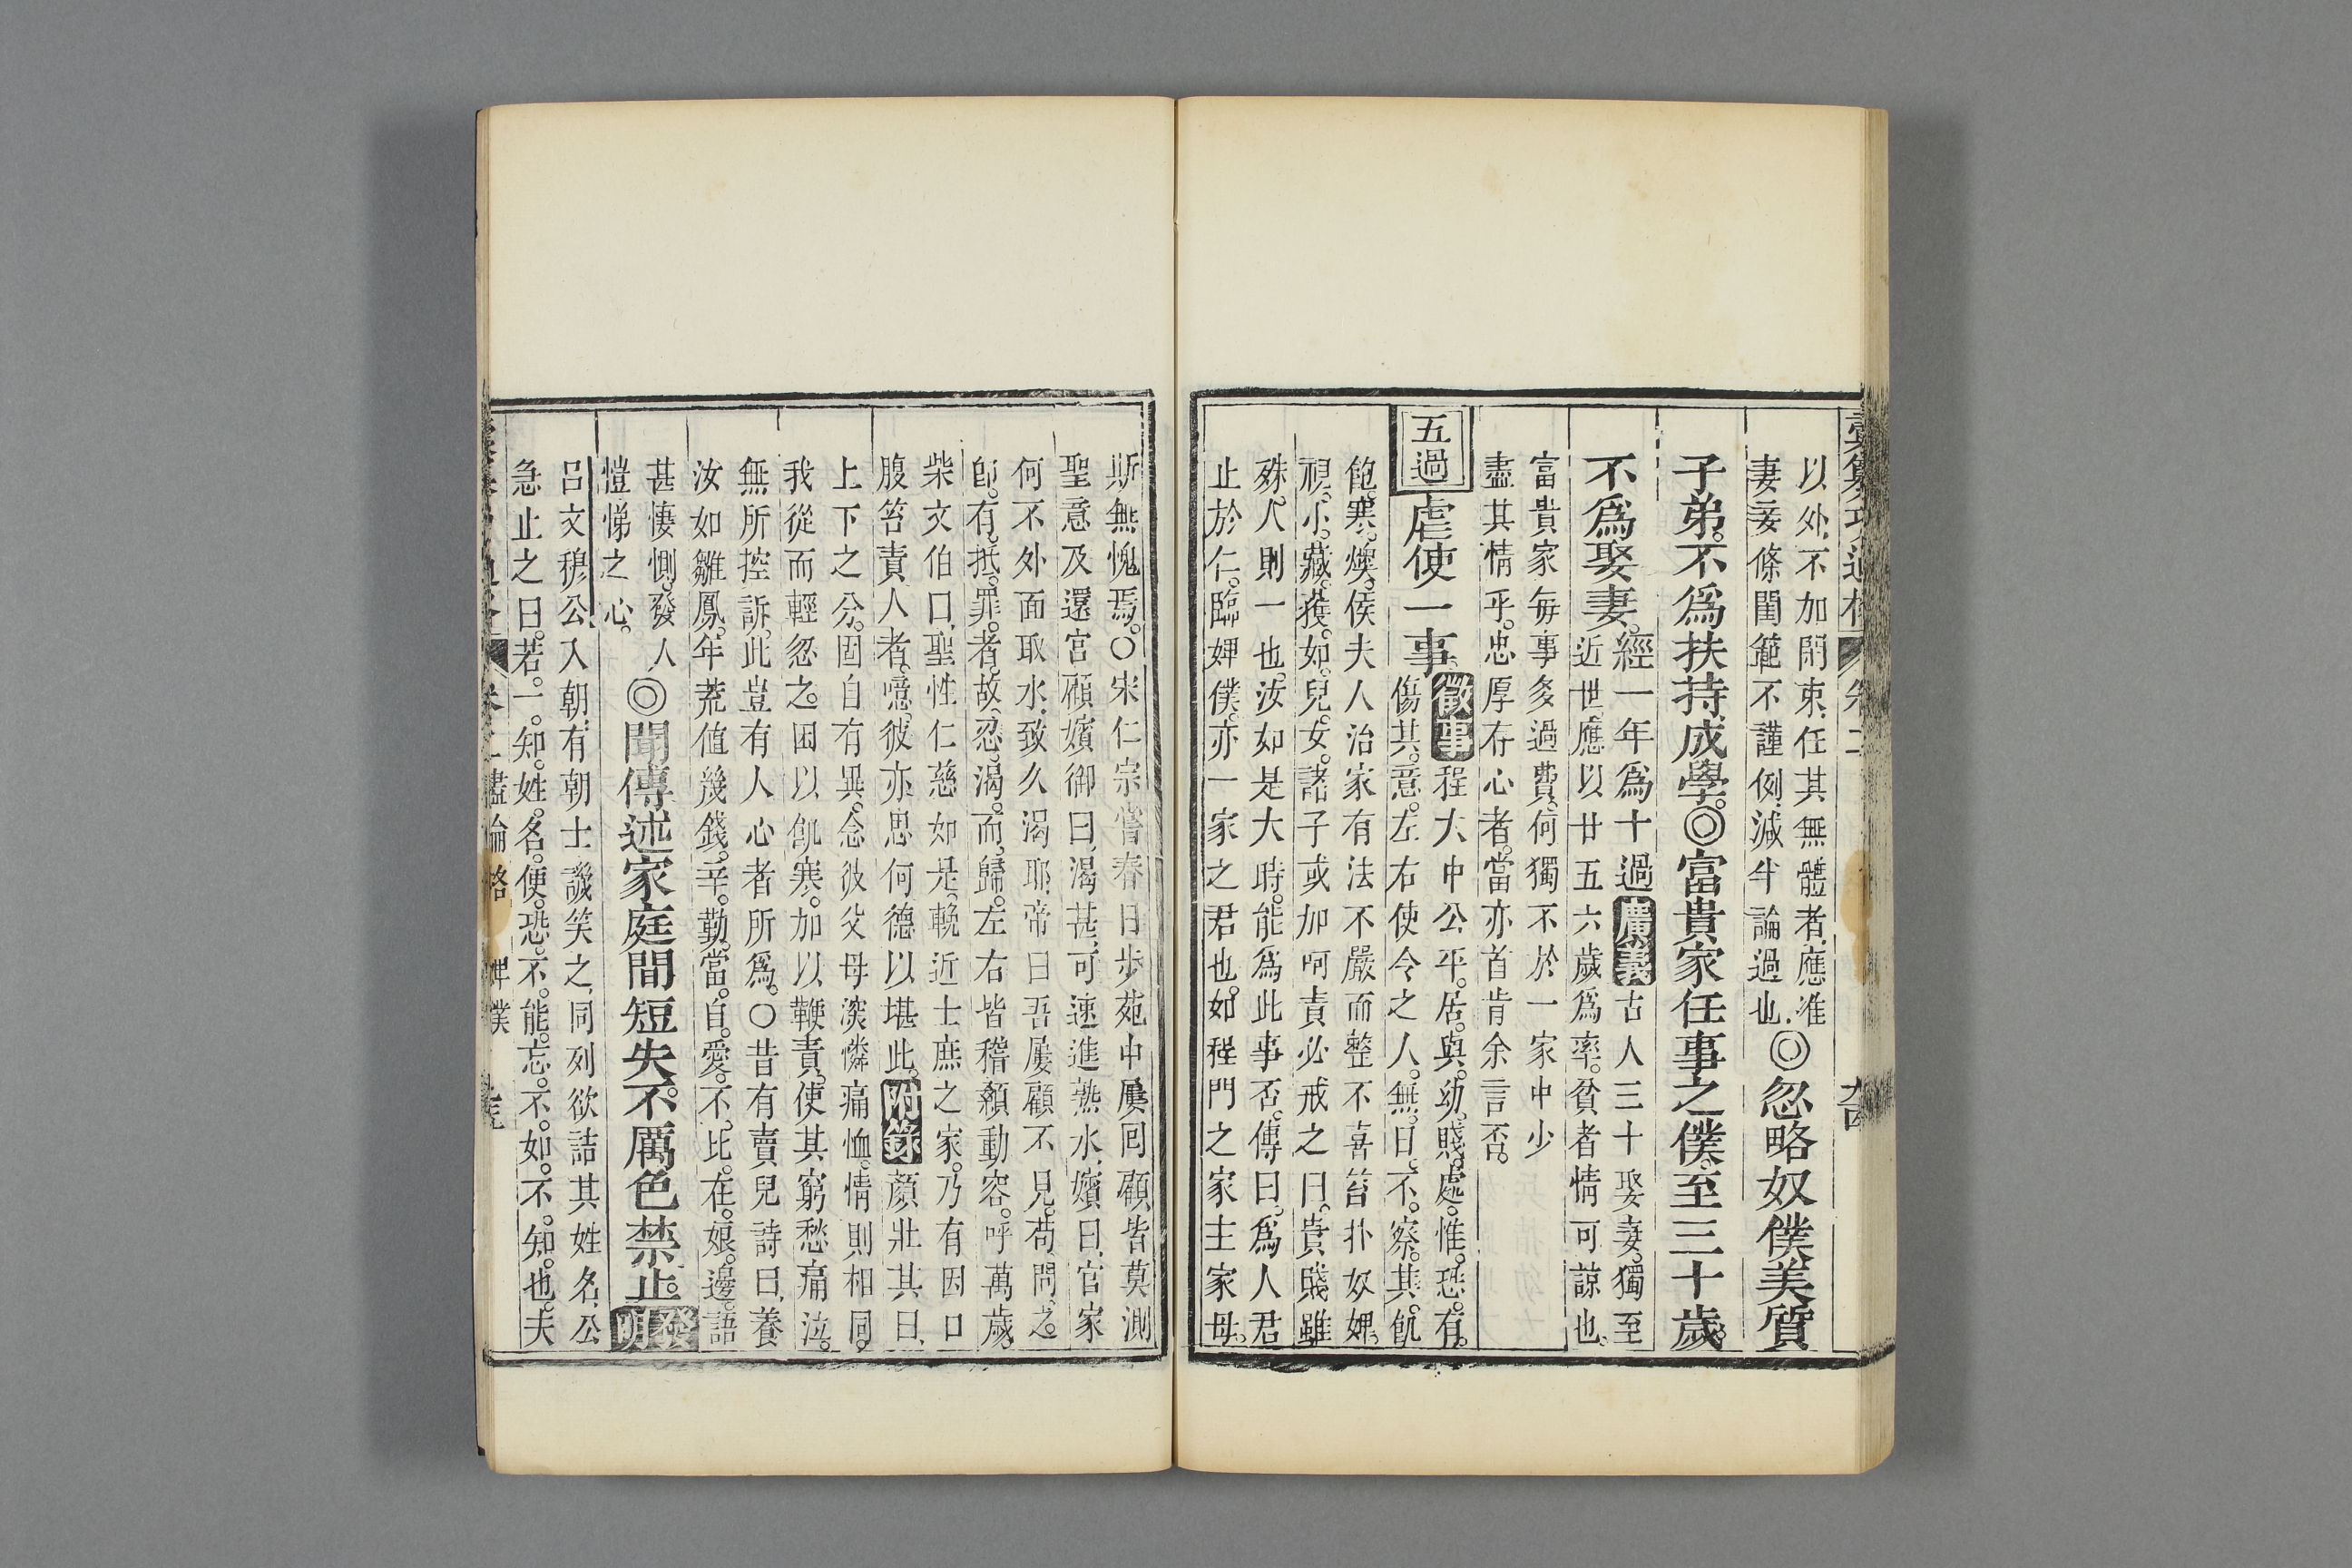 彙纂功過格 卷二 六四
以外不加閑束任其無體者應准
妻妾條閨範不謹例減半論過也◎忽略奴僕美質
子弟不爲扶持成學◎富貴家任事之僕至三十歲
不爲娶妻經一年爲十過廣義古人三十娶妻獨至
近世應以廿五六歲爲率貧者情可諒也
富貴家每事多過費何獨不於一家中少
盡其情乎忠厚存心者當亦首肯余言否
五過
虐使一事徵事程大中公平居與幼賤處惟恐有
傷其意左右使令之人無日不察其飢
飽寒燠侯夫人治家有法不嚴而整不喜笞扑奴婢
視小臧獲如兒女諸子或加呵責必戒之曰貴賤雖
殊人則一也汝如是大時能爲此事否傳曰爲人君
止於仁臨婢僕亦一家之君也如程門之家主家母
斯無愧焉○宋仁宗嘗春日步苑中屢回顧皆莫測
聖意及還宮顧嬪御曰渴甚可速進熱水嬪曰官家
何不外面取水致久渴耶帝曰吾屢顧不見苟問之
卽有抵罪者故忍渴而歸左右皆稽顙動容呼萬歲
柴文伯曰聖性仁慈如是輓近士庶之家乃有因口
腹笞責人者噫彼亦思何德以堪此附錄顏壯其曰
上下之分固自有異念彼父母深憐痛恤情則相同
我從而輕忽之困以飢寒加以鞭責使其窮愁痛泣
無所控訴此豈有人心者所爲○昔有賣兒詩曰養
汝如雛鳳年荒値幾錢辛勤當自愛不比在娘邊語
甚悽惻發人
愷悌之心◎聞傳述家庭間短失不厲色禁止發明
呂文穆公入朝有朝士譏笑之同列欲詰其姓名公
急止之曰若一知姓名便恐不能忘不如不知也夫
卷二 盡倫格 婢僕